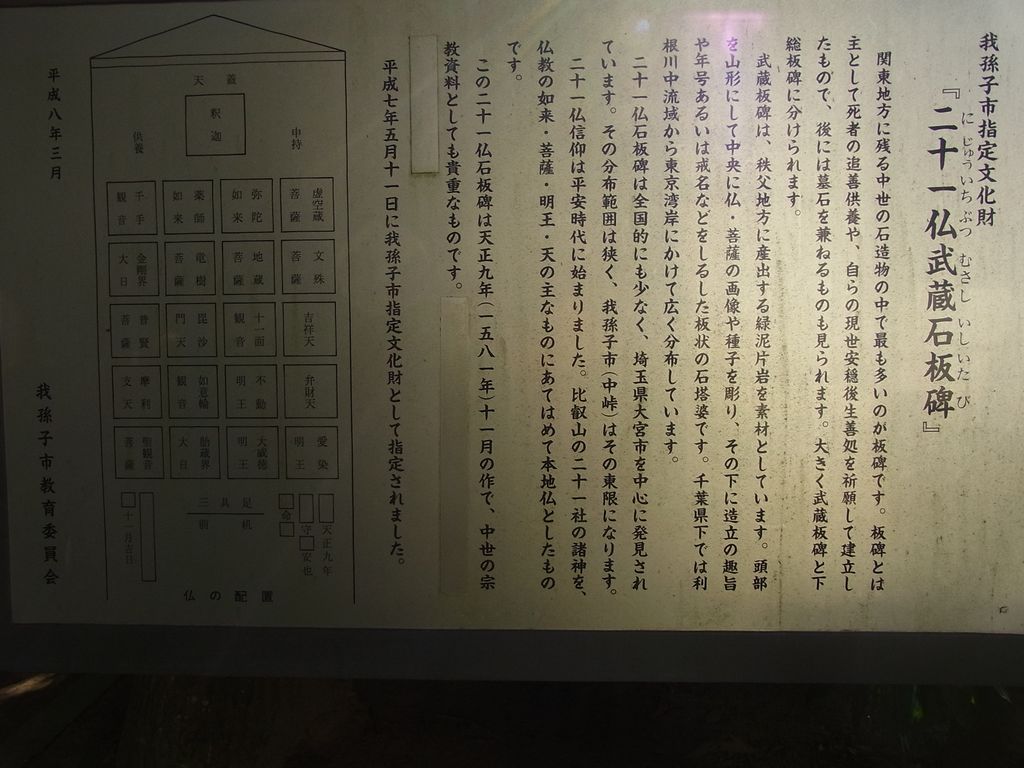 我孫子市指定文化財
『二十一仏武蔵石板碑』
にじゅういちぶつ むさし いしいたび
関東地方に残る中世の石造物の中で最も多いのが板碑です。板碑とは
主として死者の追善供養や、自らの現世安穏後生善処を祈願して建立し
たもので、後には墓石を兼ねるものも見られます。大きく武蔵板碑と下
総板碑に分けられます。
武蔵板碑は、秩父地方に産出する緑泥片岩を素材としています。頭部
を山形にして中央に仏・菩薩の画像や種子を彫り、その下に造立の趣旨
や年号あるいは戒名などをしるした板状の石塔婆です。千葉県下では利
根川中流域から東京湾岸にかけて広く分布しています。
二十一仏石板碑は全国的にも少なく、埼玉県大宮市を中心に発見され
ています。その分布範囲は狭く、我孫子市(中峠)はその東限になります。
二十一仏信仰は平安時代に始まりました。比叡山の二十一社の諸神を、
仏教の如来・菩薩・明王・天の主なものにあてはめて本地仏としたもの
です。
この二十一仏石板碑は天正九年(一五八一年)十一月の作で、中世の宗
教資料としても貴重なものです。
平成七年五月十一日に我孫子市指定文化財として指定されました。
天蓋
釈迦
申待
供養
虚空蔵菩薩
弥陀如来
薬師如来
千手観音
文殊菩薩
地蔵菩薩
竜樹菩薩
金剛界大日
吉祥天
十一面観音
毘沙門天
普賢菩薩
弁財天
不動明王
如意輪観音
摩利支天
愛染明王
大威徳明王
胎蔵界大日
聖観音菩薩
天正九年
□守□安也
□命□
三具足
前机
□十一月吉日
仏の配置
平成八年三月
我孫子市教育委員会